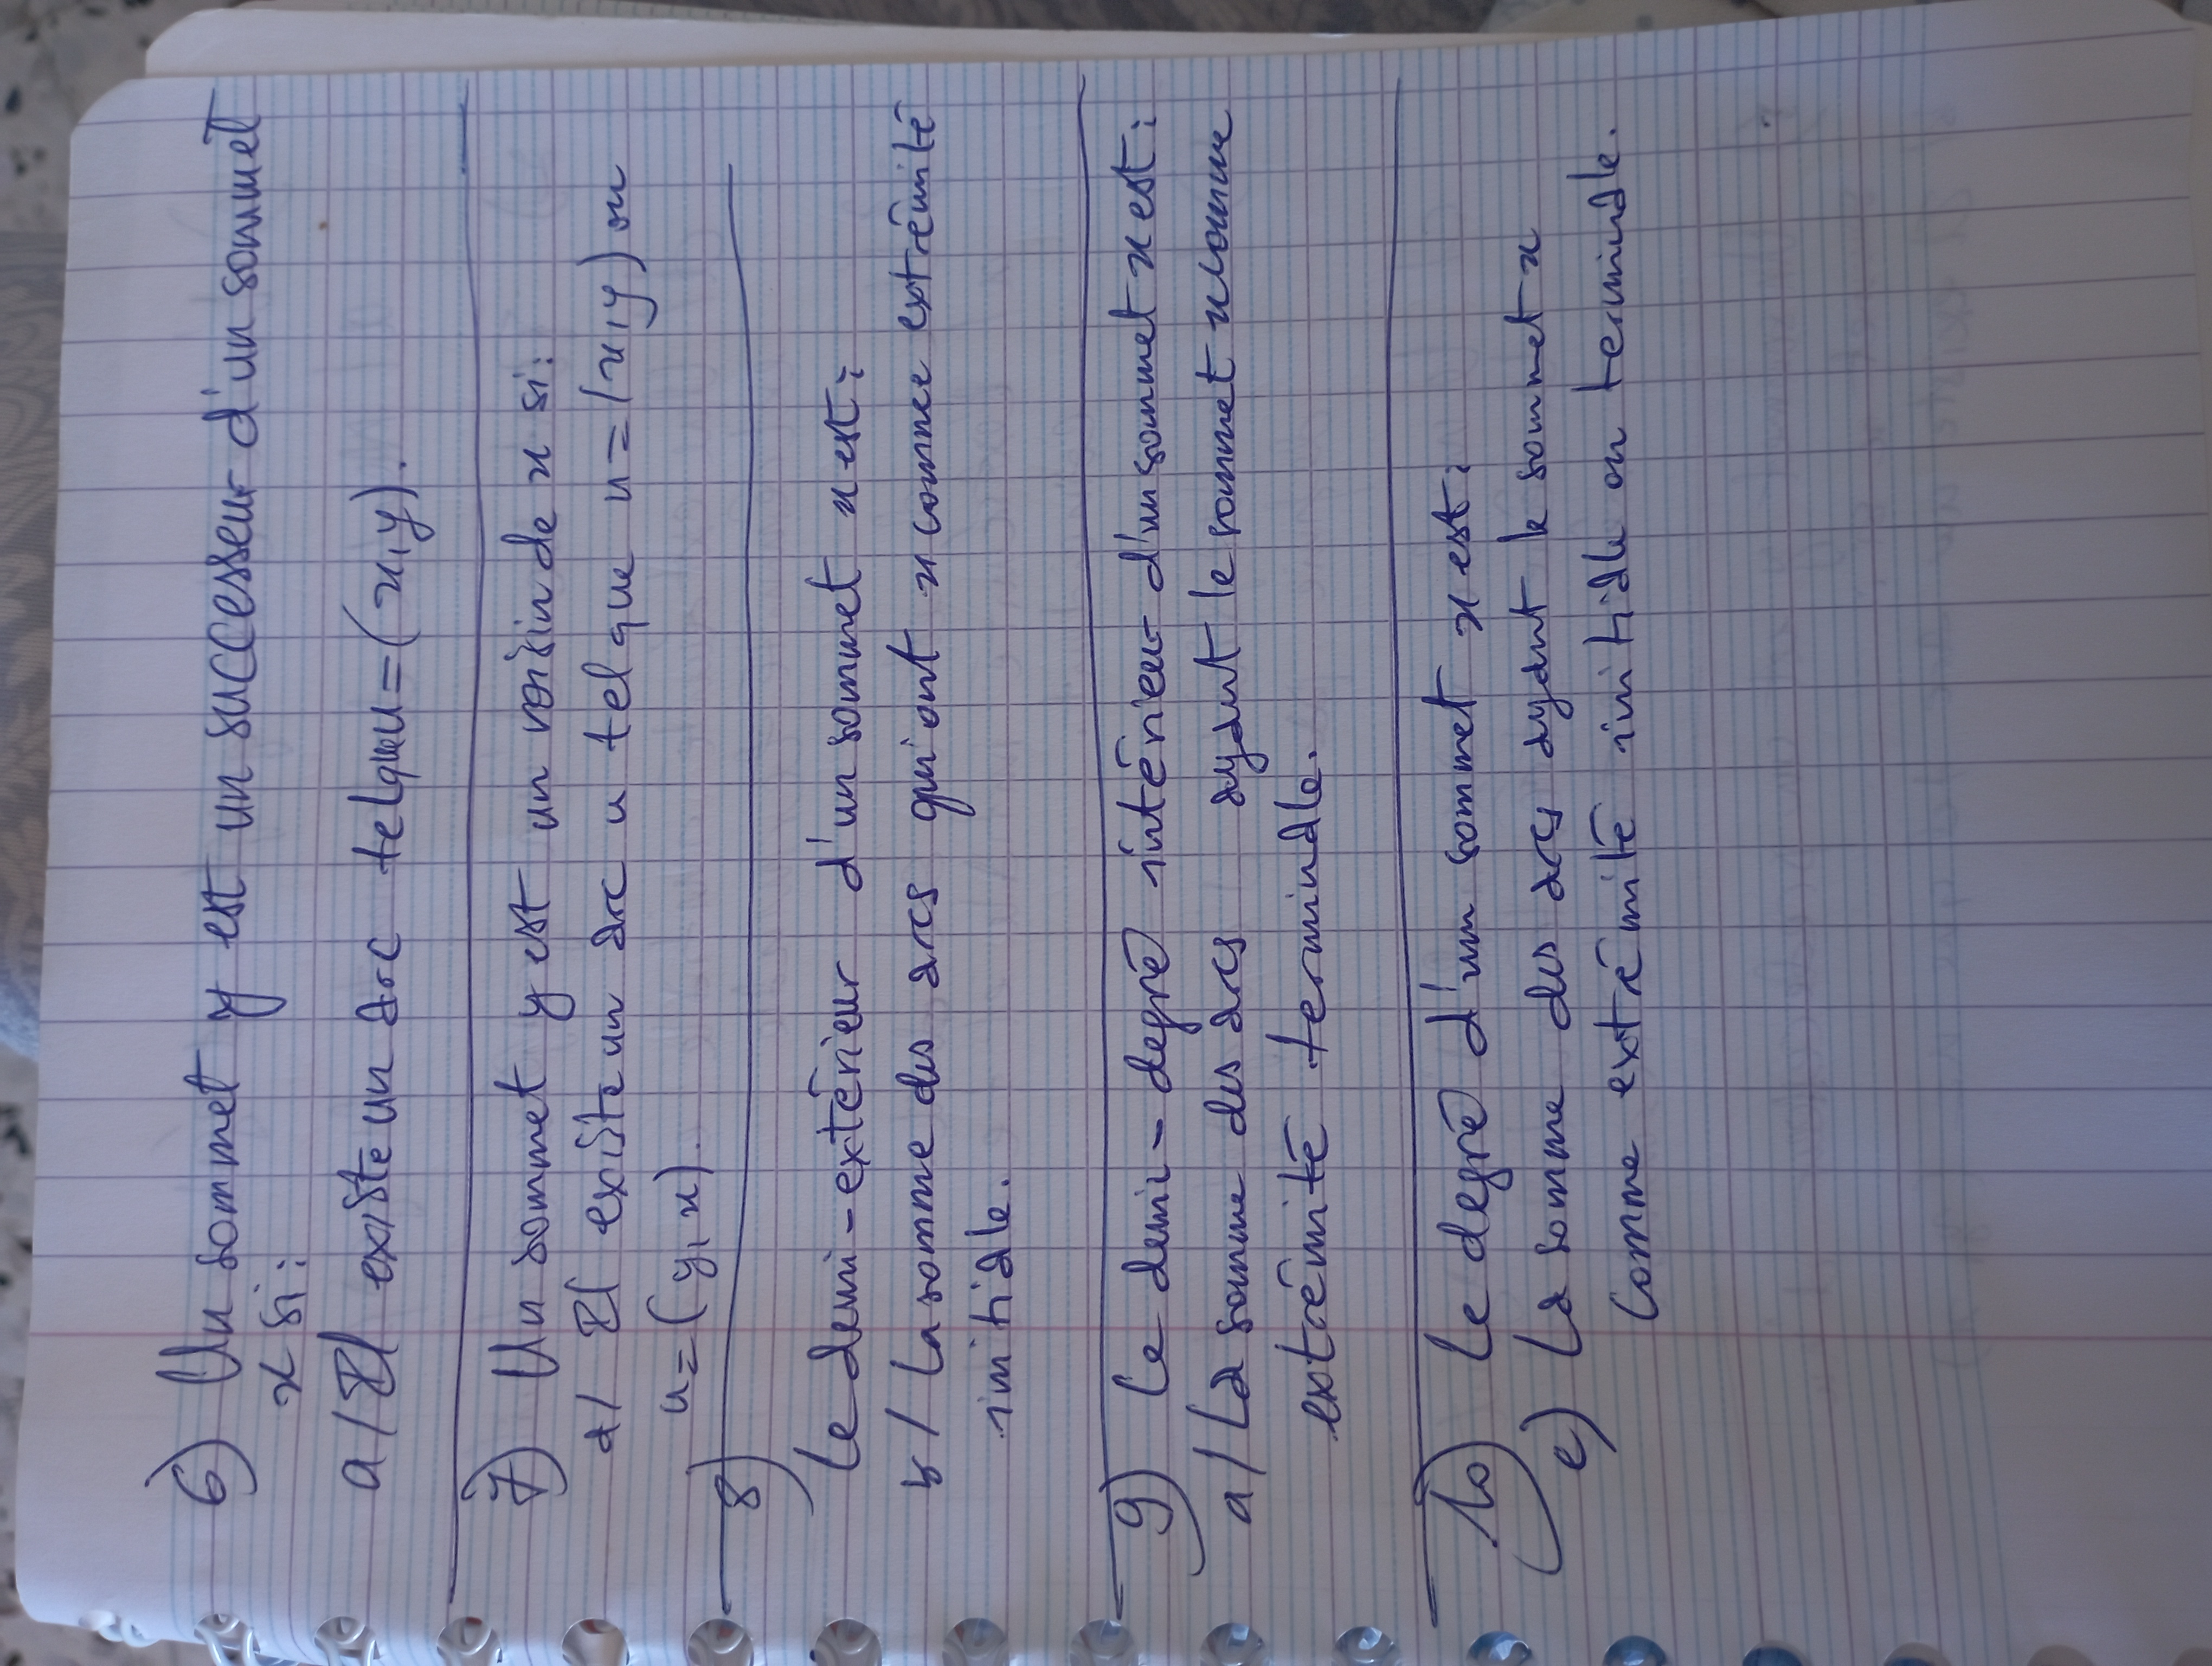 6) Un sommet y est un successeur d'un sommet
x si :
a/ Il existe un arc telque u=(x,y).
7) Un sommet y est un voisin de x si:
d/ Il existe un arc u tel que u=(x,y) ou
u=(y,x).
8)
Le demi-extérieur d'un sommet x est :
b/ La somme des arcs qui ont x comme extrémité
initiale.
9) Le demi-degré intérieur d'un sommet x est :
a/ La somme des arcs ayant le sommet x comme
extrémité terminale.
10) Le degré d'un sommet x est :
e) La somme des arcs ayant le sommet x
comme extrémité initiale ou terminale.